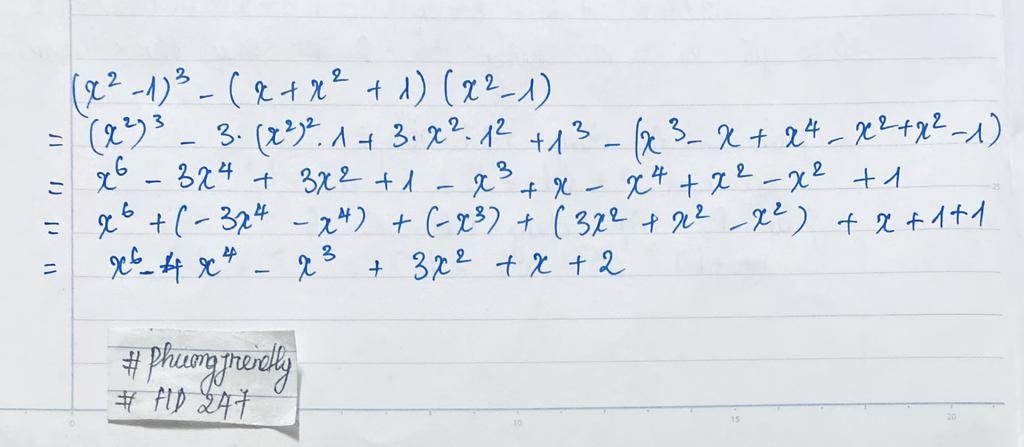 (x² - 1)³ - (x + x² + 1) (x² - 1)
= (x²)³ - 3·(x²)²·1 + 3·x²·1² + 1³ - (x³ - x + x⁴ - x² + x² - 1)
= x⁶ - 3x⁴ + 3x² + 1 - x³ + x - x⁴ + x² - x² + 1
= x⁶ + (-3x⁴ - x⁴) + (-x³) + (3x² + x² - x²) + x + 1 + 1
= x⁶ - 4x⁴ - x³ + 3x² + x + 2
# Phuongfriendly
# FID 247